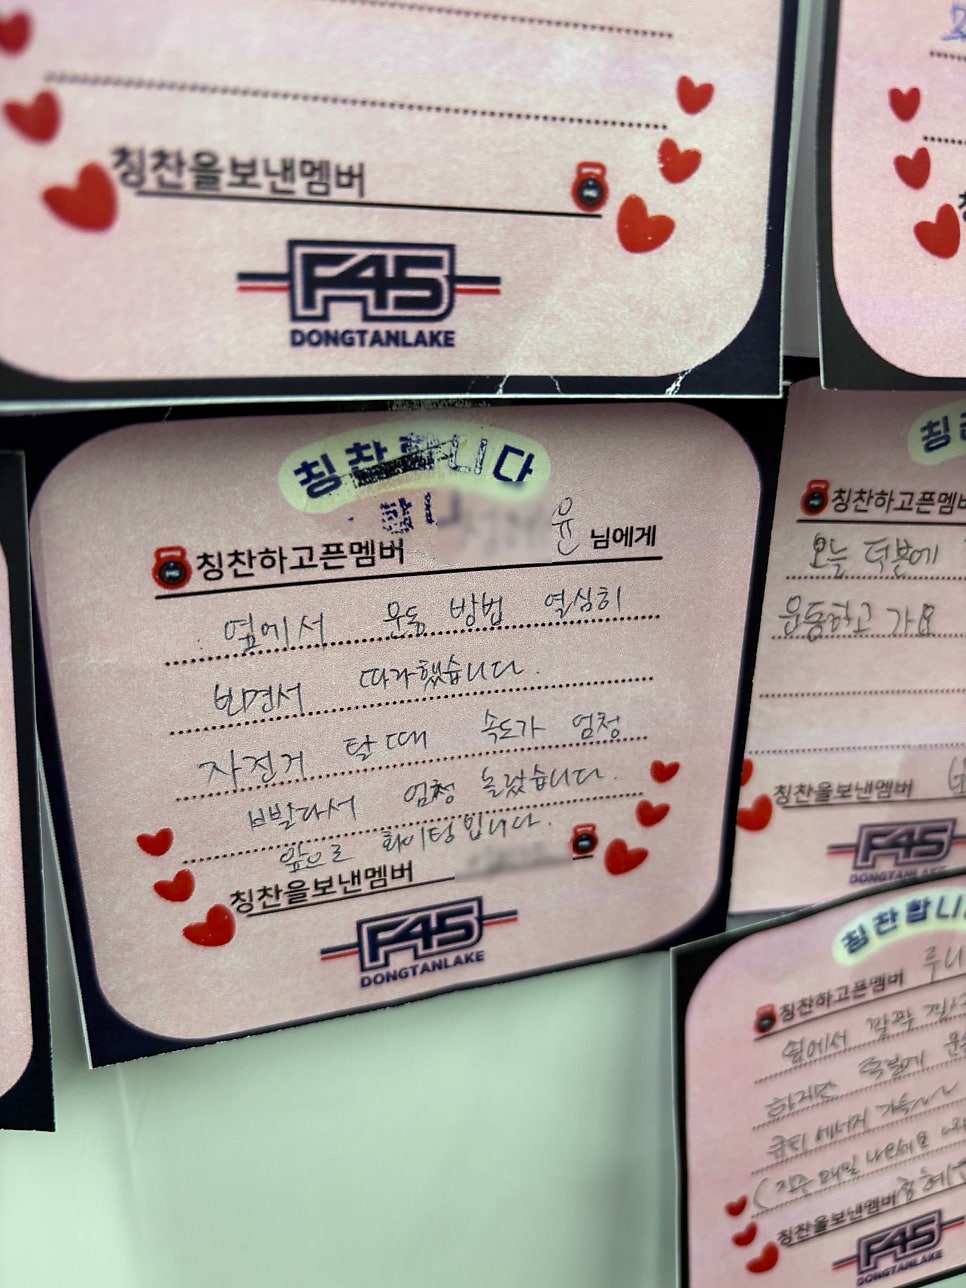 칭찬을보낸멤버
F45
DONGTANLAKE
칭찬합니다
칭찬하고픈멤버 윤 님에게
옆에서 운동 방법 열심히
보면서 따라했습니다.
자전거 탈때 속도가 엄청
빨라서 엄청 놀랐습니다.
앞으로 화이팅입니다.
칭찬을보낸멤버
F45
DONGTANLAKE
칭찬하고픈멤버
오늘 덕분에
운동하고 가요
칭찬을보낸멤버
F45
DONGTANLAKE
칭찬합니
칭찬하고픈멤버 루니
옆에서
하지만 덕분에
큐티 에너지 가득~~
칭찬을보낸멤버
F45
DONGTANLAKE